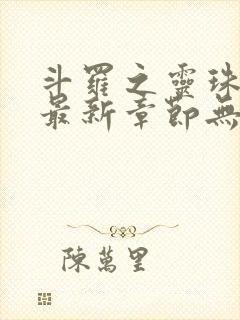 斗羅之靈珠
最新章節無
陳萬里